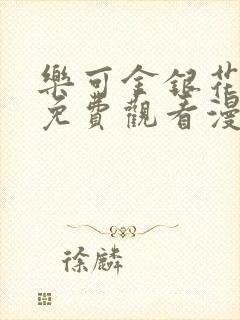 樂可金銀花
免費觀看漫
徐麟